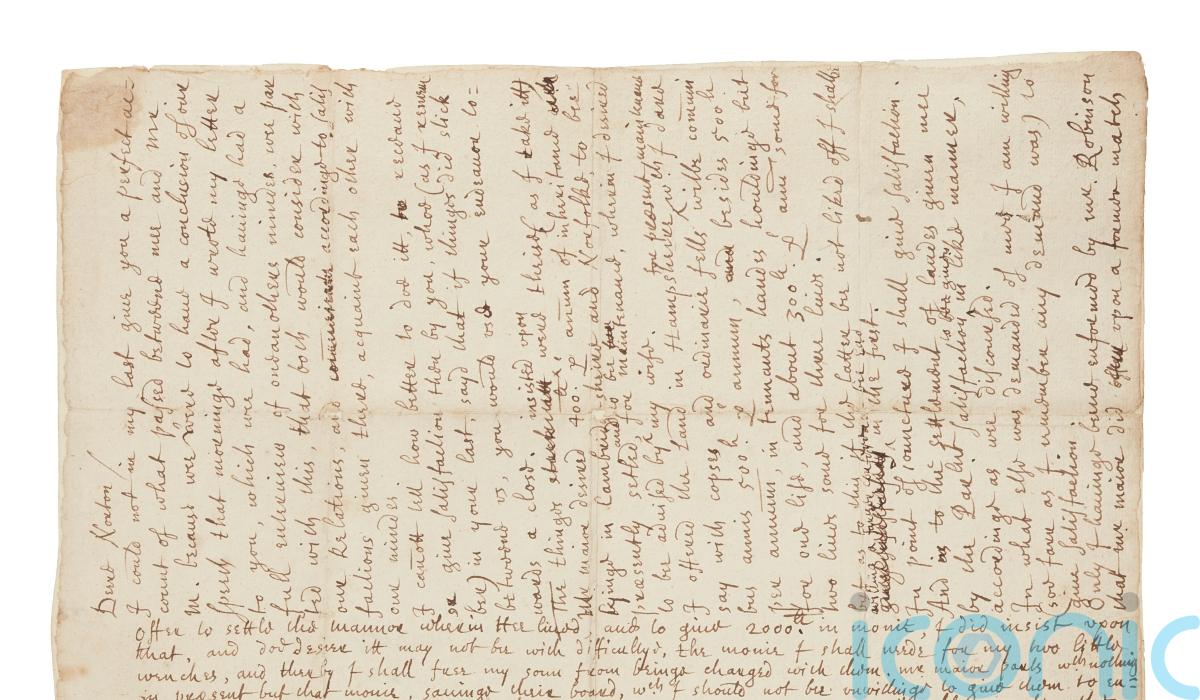 Deere Norton
I could not in my last give you a perfect ac-
count of what passed betweene mee and Mr
M. because wee were to have a conclusion of our
speech that morninge after I wrote my letter
to you, which wee had, and havinge had a
full enterview of one anothers mindes, wee par
ted with this, that both would consider with
our Relations, and according to satis
factions given therein, acquaint each other with
our mindes.
I cannott tell how better to doe itt, to
give satisfaction then by you, who (as I remem
ber) in your last, sayd that if things did stick
betweene us, you would use your endeavor to=
wards a close.
The things insisted upon were thiese (as I take itt)
Mr Maior desired 400 l p annum of inheritance
lyinge in Cambridgshire and Norfolke to be
presently setled, and to be maintenance, wherein I desired
to be advised by my wife
I offered the Land in Hampsheire for present maintenance, wch I dare
say with copses and ordinarie fells wilbe communi
bus annis 500 l p annum, besides 500 l
per annum, in tennants handes houldinge but
for one life, and about 300 l p annum, some for
two lives some for three lives.
but as to this if the latter bee not liked off I shalbe
willinge a farther conference bee had in the first.
In point of joincture I shall give satisfaction.
And as to the settlement of landes given mee
by the Parlamt satisfaction is to bee given in like manner,
accordinge as wee discoursed.
In what else was demanded of mee I am willing
(so farr as I remember any demand was) to
give satisfaction.
Only I havinge beene enformed by Mr Robinson
that Mr Maior did upon a former match
offer to settle the mannor wherein Hee lived, and to give 2000 l in monie, I did insist upon
that, and doe desier itt may not be with difficultye, the monie I shall neede for my two little
wenches, and therby I shall free my sonn from beinge charged with them. Mr Maior parts wth nothing
in present but that monie, savinge their board, wch I should not be unwillinge to give them, to en
iconic